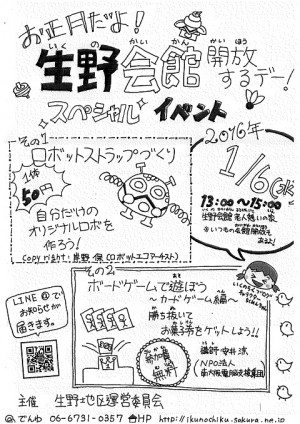 お正月だよ!
いく の かい かん かい ほう
生野会館開放
するデー!
スペシャル イベント
その1
ロボットストラップづくり
1体
50円
自分だけの
オリジナルロボ
を作ろう!
2016年
1/6
13:00〜15:00
生野会館 老人憩いの家
※いつもの会館開放も
あるよ!
その2
ボードゲームで遊ぼう
〜カードゲーム編〜
勝ち抜いて
お菓子をゲットしよう!!
参加費
無料
講師・安井 流
NPO法人
LINE@で
お知らせが
届きます。
主催 生野地区運営委員会
でんわ 06-6731-0357 HP http://ikunochiku.sakura.ne.jp